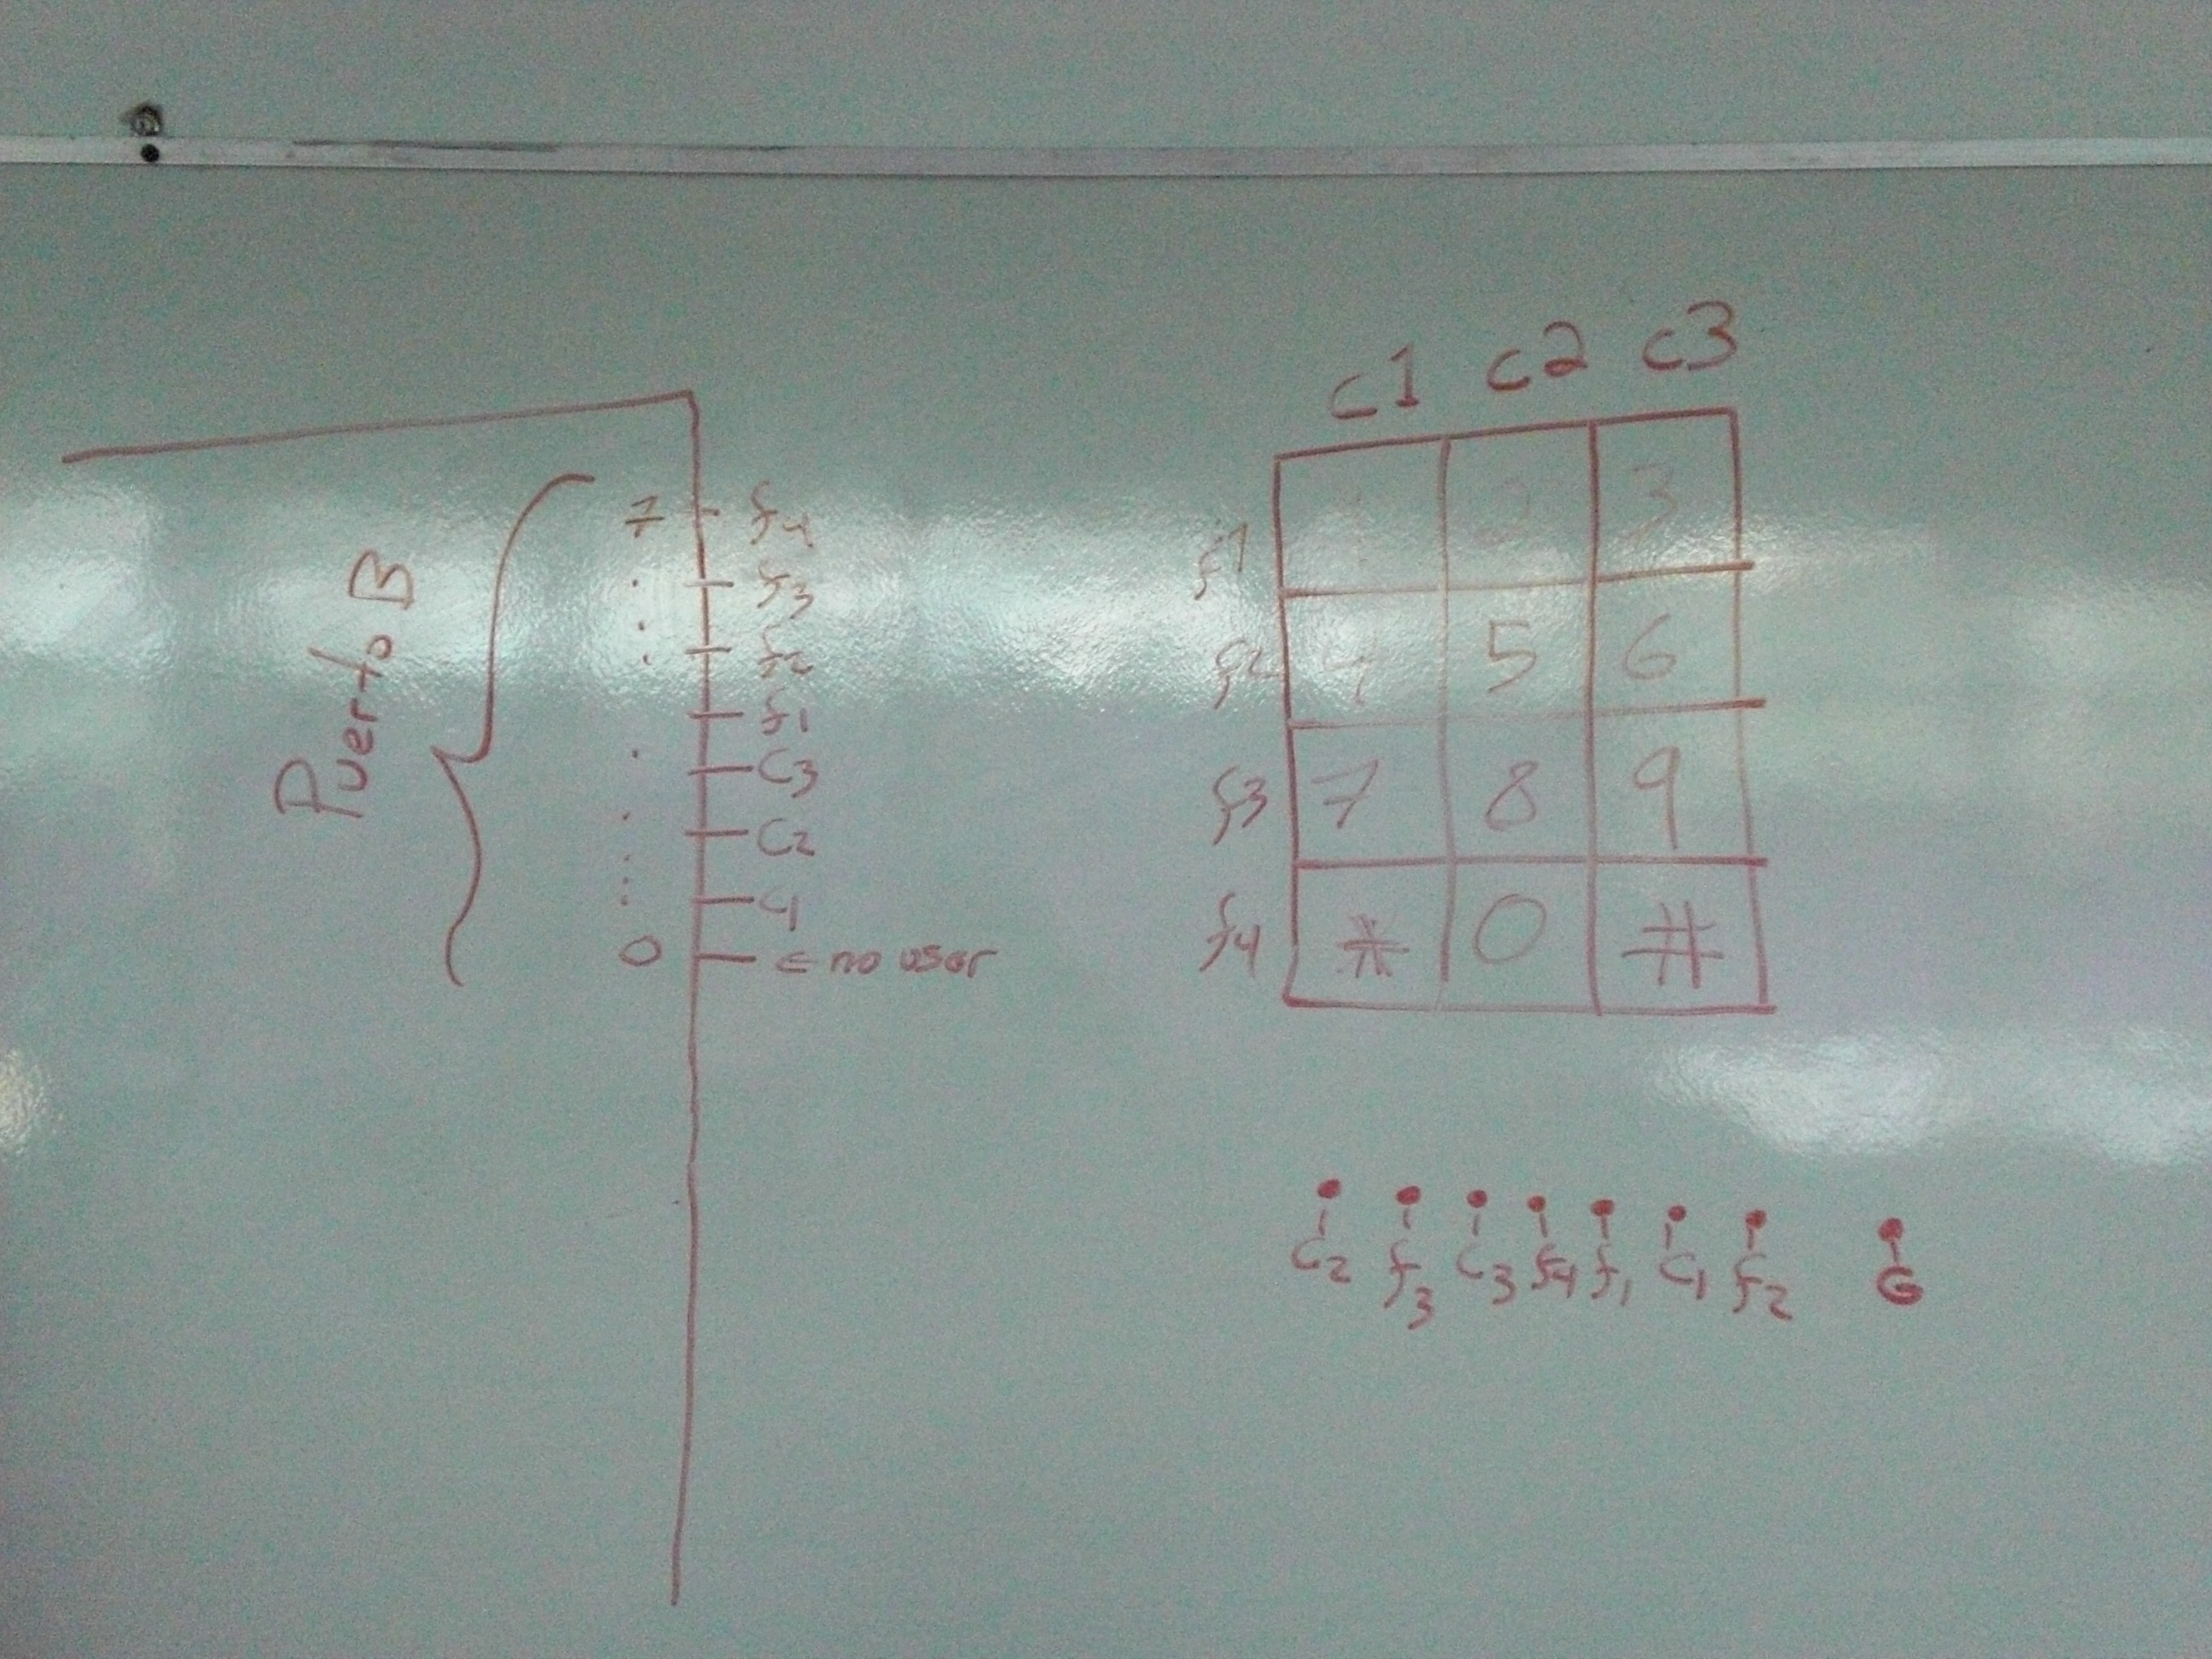 Puerto B
7 f4
f3
f2
f1
C3
C2
C1
0 ← no usar
C1 C2 C3
f1 1 2 3
f2 4 5 6
f3 7 8 9
f4 * 0 #
C2 f3 C3 f4 f1 C1 f2 G